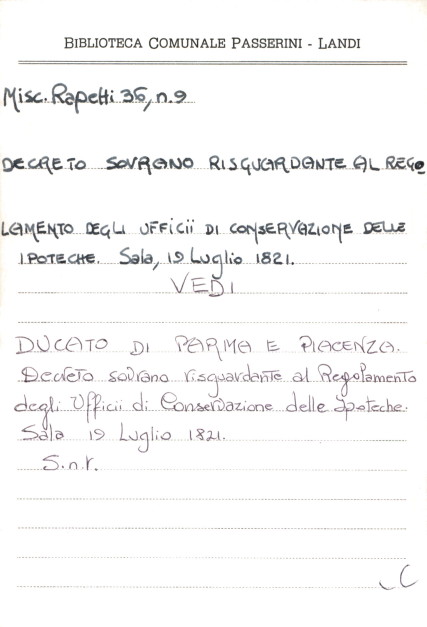 BIBLIOTECA COMUNALE PASSERINI - LANDI
Misc. Rapetti 36, n.9
DECRETO SOVRANO RISGUARDANTE AL REGO
LAMENTO DEGLI UFFICII DI CONSERVAZIONE DELLE
IPOTECHE. Sala, 19 Luglio 1821.
VEDI
DUCATO DI PARMA E PIACENZA.
Decreto sovrano risguardante al Regolamento
degli Ufficii di Conservazione delle Ipoteche.
Sala 19 Luglio 1821.
S.n.t.